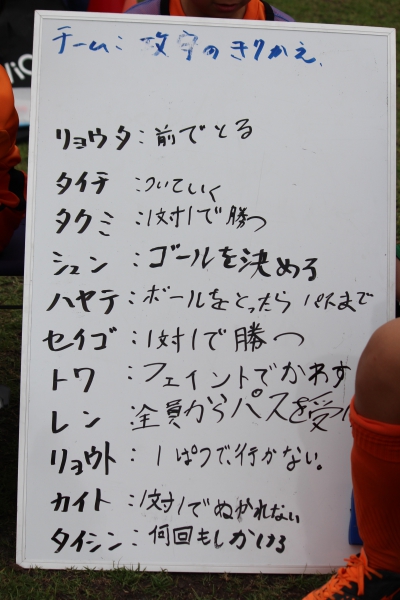 チーム：攻守のきりかえ、
リョウタ：前でとる
タイチ：ついていく
タクミ：1対1で勝つ
シュン：ゴールを決める
ハヤテ：ボールをとったらパスまで
セイゴ：1対1で勝つ
トワ：フェイントでかわす
レン：全員からパスを受け
リョウト：1ぱつで行かない。
カイト：1対1でぬかれない
タイシン：何回もしかける